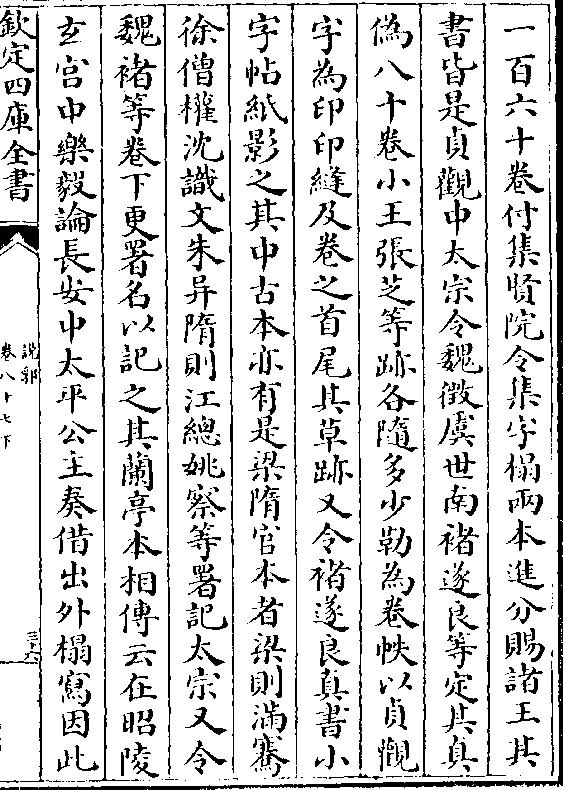 一百六十卷付集賢院令集字榻兩本進分賜諸王其
書皆是貞觀中太宗令魏徵虞世南褚遂良等定其真
偽八十卷小王張芝等跡各隨多少勒為卷帙以貞觀
字為印印縫及卷之首尾其草跡又令褚遂良真書小
字帖紙影之其中古本亦有是梁隋官本者梁則滿騫
徐僧權沈識文朱异隋則江總姚察等署記太宗又令
魏褚等卷下更署名以記之其蘭亭本相傳云在昭陵
玄宫中樂毅論長安中太平公主奏借出外榻寫因此
欽定四庫全書
說郛
卷八十七下
三十六